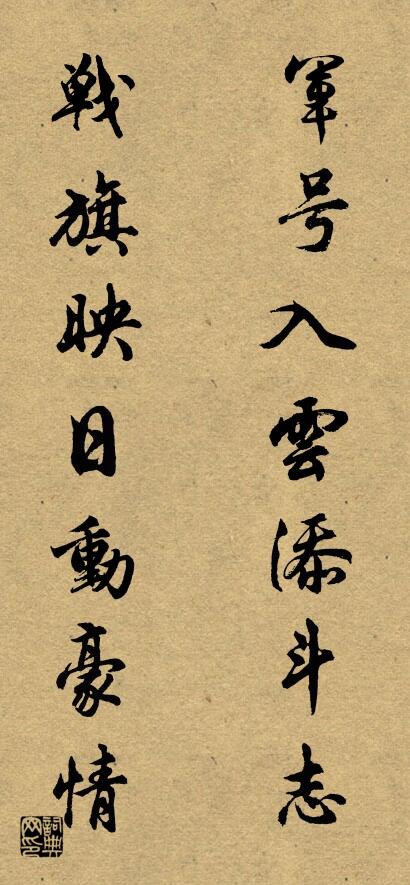 軍号入雲添斗志
戦旗映日動豪情
詞典网印